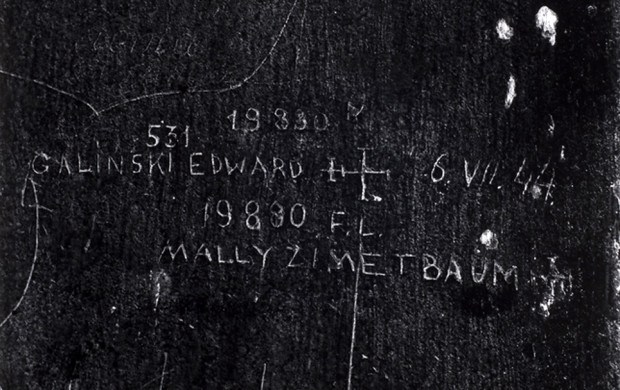 19880
531
GALIŃSKI EDWARD 6.VII.44
19880 F.L.
MALLY ZIMETBAUM